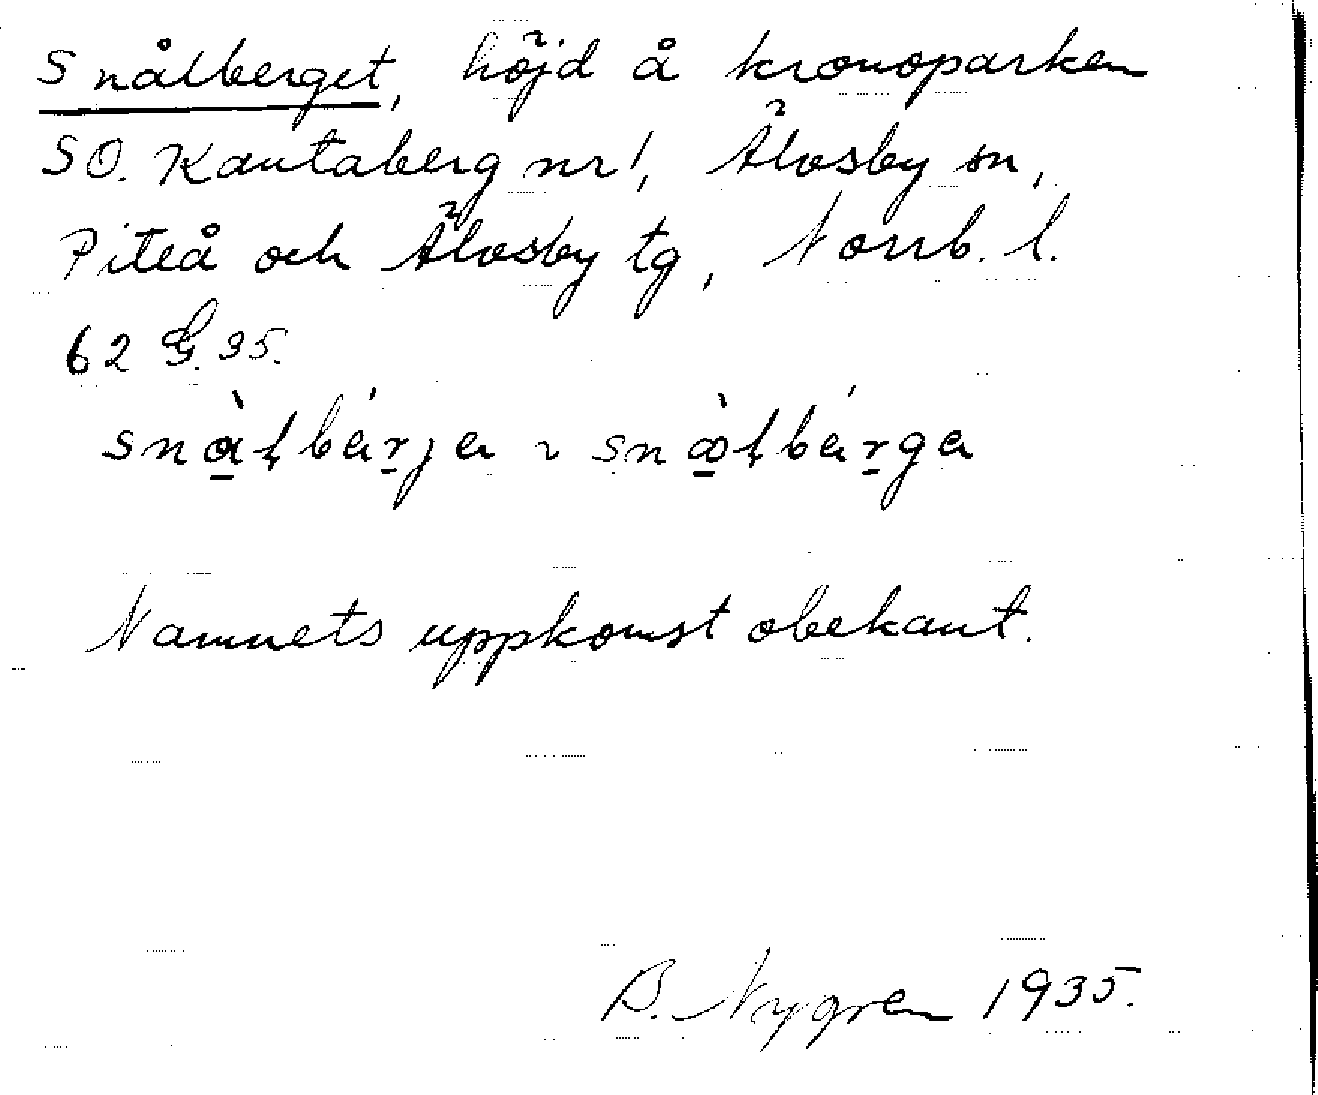 Snålberget, höjd å kronoparken
SO. Kautaberg nr 1, Älvsby sn,
Piteå och Älvsby tg, Norrb. l.
62 G. 35.
Namnets uppkomst obekant.
B. Nygren 1935.